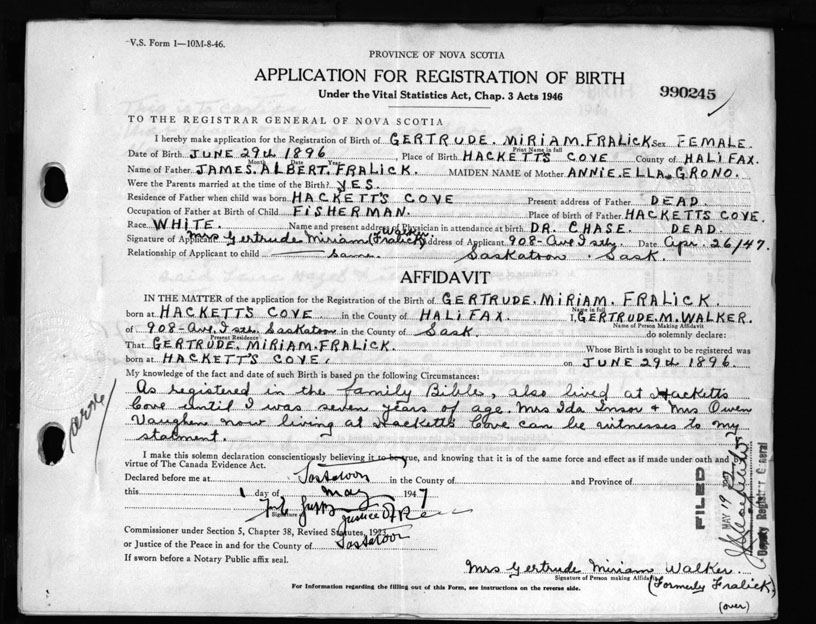 V.S. Form 1—10M-8-46.
PROVINCE OF NOVA SCOTIA
APPLICATION FOR REGISTRATION OF BIRTH
990245
Under the Vital Statistics Act, Chap. 3 Acts 1946
TO THE REGISTRAR GENERAL OF NOVA SCOTIA
I hereby make application for the Registration of Birth of GERTRUDE. MIRIAM. FRALICK. Sex FEMALE.
Print Name in full
Date of Birth JUNE 29th 1896, Place of Birth HACKETTS COVE County of HALIFAX.
Month Date Year
Name of Father JAMES. ALBERT. FRALICK. MAIDEN NAME of Mother ANNIE. ELLA. GRONO.
Were the Parents married at the time of the Birth? YES.
Residence of Father when child was born HACKETTS COVE Present address of Father DEAD.
Occupation of Father at Birth of Child FISHERMAN. Place of birth of Father HACKETTS COVE.
Race WHITE. Name and present address of Physician in attendance at birth DR. CHASE. DEAD.
Signature of Applicant Mrs Gertrude Miriam (Fralick) Walker Address of Applicant 908-Ave I sth. Date Apr. 26/47.
Relationship of Applicant to child Same. Saskatoon Sask.
AFFIDAVIT
IN THE MATTER of the application for the Registration of the Birth of GERTRUDE. MIRIAM. FRALICK.
Name in full
born at HACKETTS COVE in the County of HALIFAX. I, GERTRUDE. M. WALKER.
Name of Person Making Affidavit
of 908-Ave. I sth. Saskatoon in the County of Sask. do solemnly declare:
Present Residence
That GERTRUDE. MIRIAM. FRALICK. Whose Birth is sought to be registered was
born at HACKETTS COVE, on JUNE 29th 1896.
My knowledge of the fact and date of such Birth is based on the following Circumstances:
As registered in the family Bible, also lived at Hacketts
Cove until I was seven years of age. Mrs Ida Insor & Mrs Owen
Vaughen now living at Hacketts Cove can be witnesses to my
statment.
I make this solemn declaration conscientiously believing it to be true, and knowing that it is of the same force and effect as if made under oath and by
virtue of The Canada Evidence Act.
Declared before me at Saskatoon in the County of and Province of
this 1 day of May 1947
Signature Justice of Peace
Commissioner under Section 5, Chapter 38, Revised Statutes, 1923
or Justice of the Peace in and for the County of Saskatoon
If sworn before a Notary Public affix seal.
Mrs Gertrude Miriam Walker.
Signature of Person making Affidavit
(Formerly Fralick)
For Information regarding the filling out of this Form, see instructions on the reverse side.
(over)
FILED
MAY 19
Deputy Registrar General